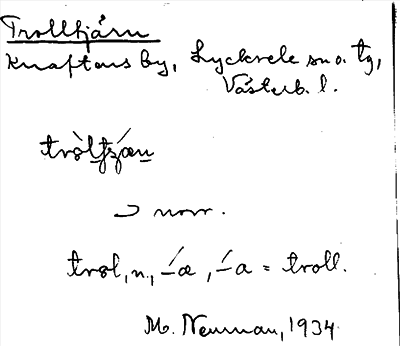 Trolltjärn
Knaftens by, Lycksele sn o. tg,
Västerb. l.
tròltjǽn
⊃ norr.
trol, n., -́æ, -́a = troll.
M. Neuman, 1934